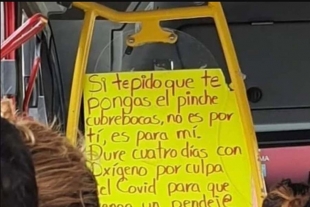 Si te pido que te
pongas el pinche
cubrebocas, no es por
tí, es para mí.
Dure cuatro días con
Oxígeno por culpa
del Covid para que
un pendeje